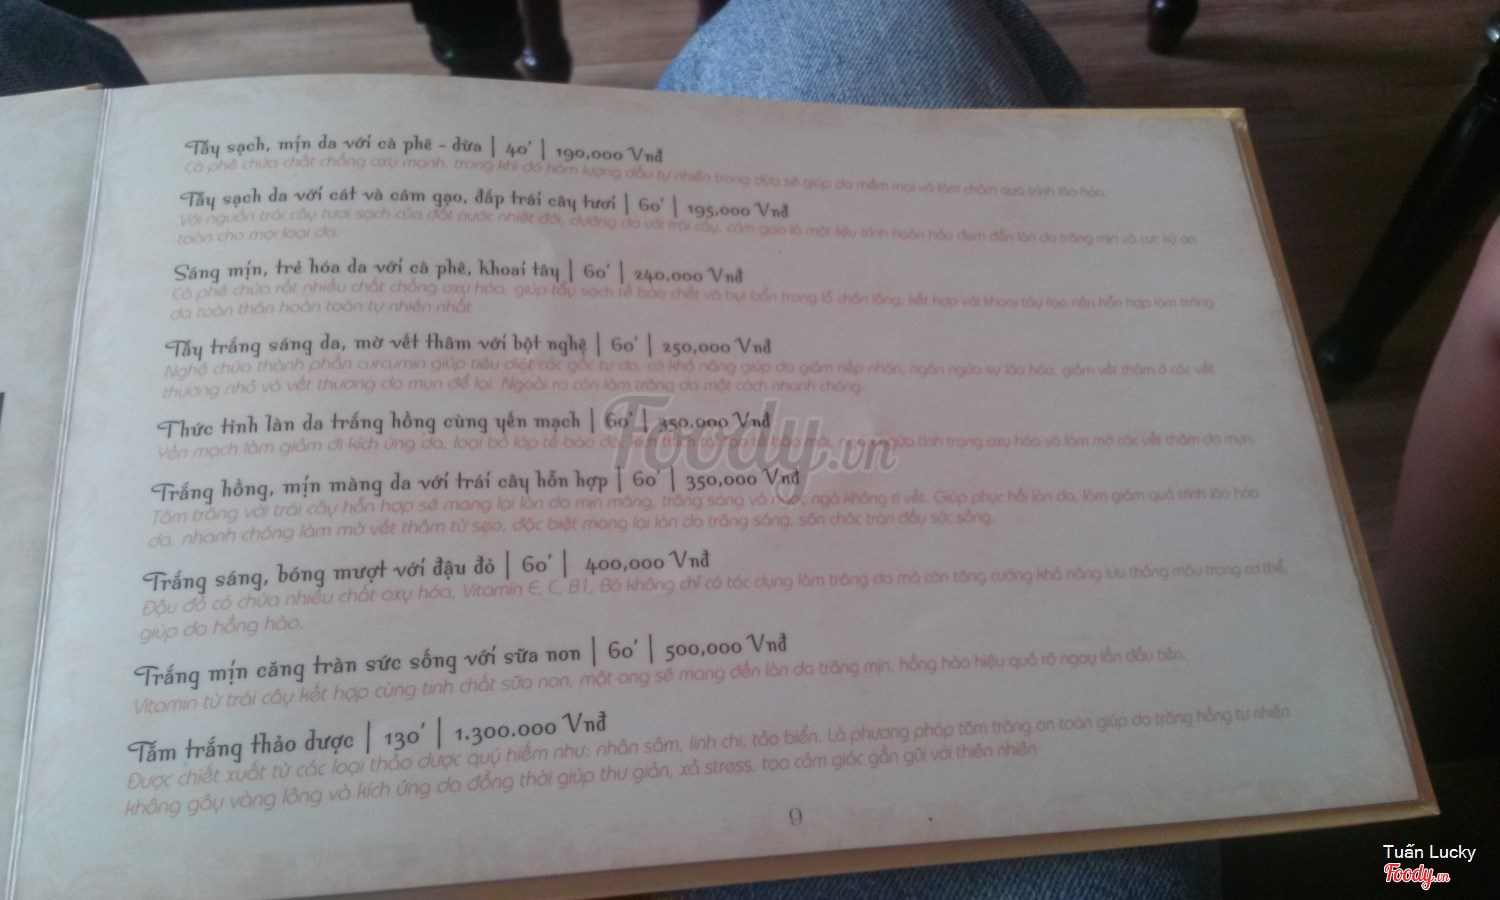 Tẩy sạch, mịn da với cà phê - dừa | 40' | 190,000 Vnđ
Cà phê chứa chất chống oxy mạnh, trong khi đó hàm lượng dầu tự nhiên trong dừa sẽ giúp da mềm mại và làm chậm quá trình lão hóa.
Tẩy sạch da với cát và cám gạo, đắp trái cây tươi | 60' | 195,000 Vnđ
Với nguồn trái cây tươi sạch của đất nước nhiệt đới, dưỡng da với trái cây, cám gạo là một liệu trình hoàn hảo đem đến làn da trắng mịn và cực kỳ an
toàn cho mọi loại da.
Sáng mịn, trẻ hóa da với cà phê, khoai tây | 60' | 240,000 Vnđ
Cà phê chứa rất nhiều chất chống oxy hóa, giúp tẩy sạch tế bào chết và bụi bẩn trong lỗ chân lông, kết hợp với khoai tây tạo nên hỗn hợp làm trắng
da toàn thân hoàn toàn tự nhiên nhất
Tẩy trắng sáng da, mờ vết thâm với bột nghệ | 60' | 250,000 Vnđ
Nghệ chứa thành phần curcumin giúp tiêu diệt các gốc tự do, có khả năng giúp da giảm nếp nhăn, ngăn ngừa sự lão hóa, giảm vết thâm ở các vết
thương nhỏ và vết thương do mụn để lại. Ngoài ra còn làm trắng da một cách nhanh chóng.
Thức tỉnh làn da trắng hồng cùng yến mạch | 60' | 350,000 Vnđ
Yến mạch làm giảm đi kích ứng da, loại bỏ lớp tế bào da ngừa tình trạng oxy hóa và làm mờ các vết thâm do mụn.
Foody.vn
Trắng hồng, mịn màng da với trái cây hỗn hợp | 60' | 350,000 Vnđ
Tắm trắng với trái cây hỗn hợp sẽ mang lại làn da mịn màng, trắng sáng và ngọc ngà không tì vết. Giúp phục hồi làn da, làm giảm quá trình lão hóa
da, nhanh chóng làm mờ vết thâm từ sẹo, đặc biệt mang lại làn da trắng sáng, săn chắc tràn đầy sức sống.
Trắng sáng, bóng mượt với đậu đỏ | 60' | 400,000 Vnđ
Đậu đỏ có chứa nhiều chất oxy hóa, Vitamin E, C, B1, B6 không chỉ có tác dụng làm trắng da mà còn tăng cường khả năng lưu thông máu trong cơ thể,
giúp da hồng hào.
Trắng mịn căng tràn sức sống với sữa non | 60' | 500,000 Vnđ
Vitamin từ trái cây kết hợp cùng tinh chất sữa non, mật ong sẽ mang đến làn da trắng mịn, hồng hào hiệu quả rõ ngay lần đầu tiên.
Tắm trắng thảo dược | 130' | 1.300.000 Vnđ
Được chiết xuất từ các loại thảo dược quý hiếm như: nhân sâm, linh chi, tảo biển. Là phương pháp tắm trắng an toàn giúp da trắng hồng tự nhiên
không gây vàng lông và kích ứng da đồng thời giúp thư giản, xả stress, tạo cảm giác gần gũi với thiên nhiên
9
Tuấn Lucky
Foody.vn